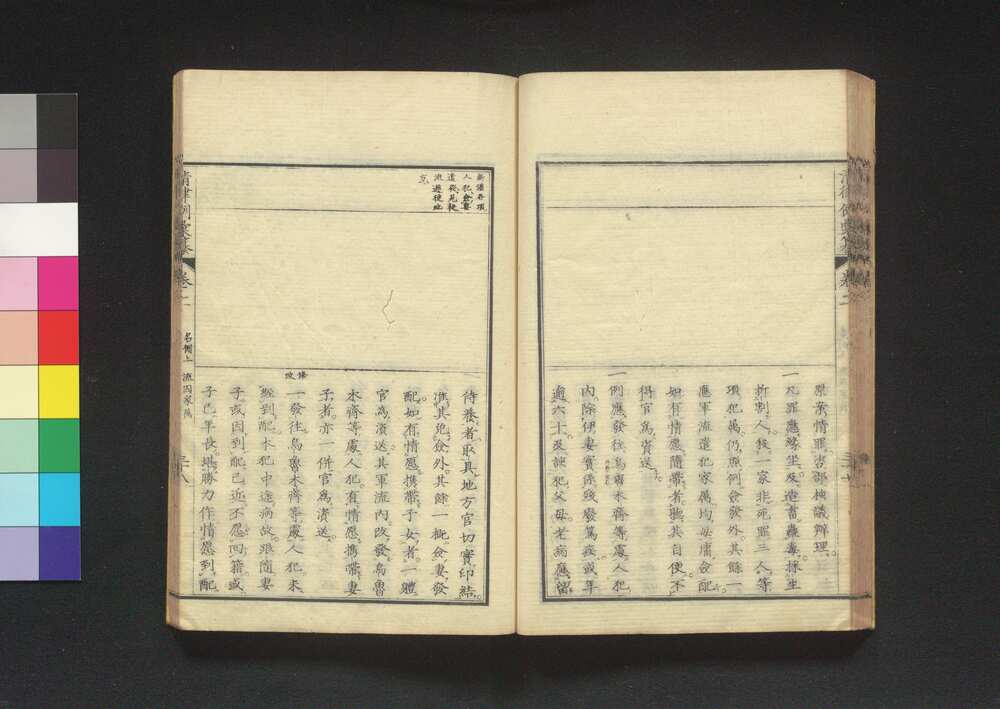 原案情罪咨部核議辦理
一凡罪應緣坐及造畜蠱毒採生
折割人殺一家非死罪三人等
項犯屬仍照例僉發外其餘一
應軍流遣犯家屬均毋庸僉配
如有情愿隨帶者聽其自便不
得官爲資送
一例應發往烏魯木齊等處人犯
內除伊妻實係殘廢篤疾或年
逾六十及該犯父母老病應留
卷二
侍養者取具地方官切實印結
准其免僉外其餘一概僉妻發
配如有情愿携帶子女者一體
官爲資送其軍流內改發烏魯
木齊等處人犯有情愿携帶妻
子者亦一併官爲資送
修改
一發往烏魯木齊等處人犯未
經到配本犯中途病故跟隨妻
子或因到配已近不愿回籍或
子已年長地勝力作情愿到配
新疆各項
人犯僉妻
遣發見徙
流遷徙地
方
清律例彙纂
卷二
名例上
流囚家屬